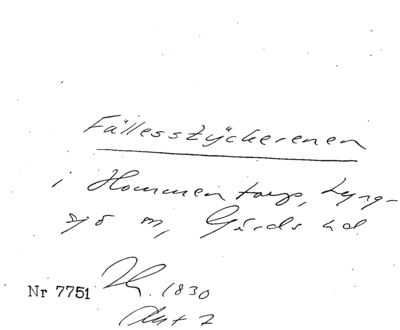 Fällesstyckerenen
i Hommentorp, Lyng-
sjö m, Gärds hd
Nr 7751
1830